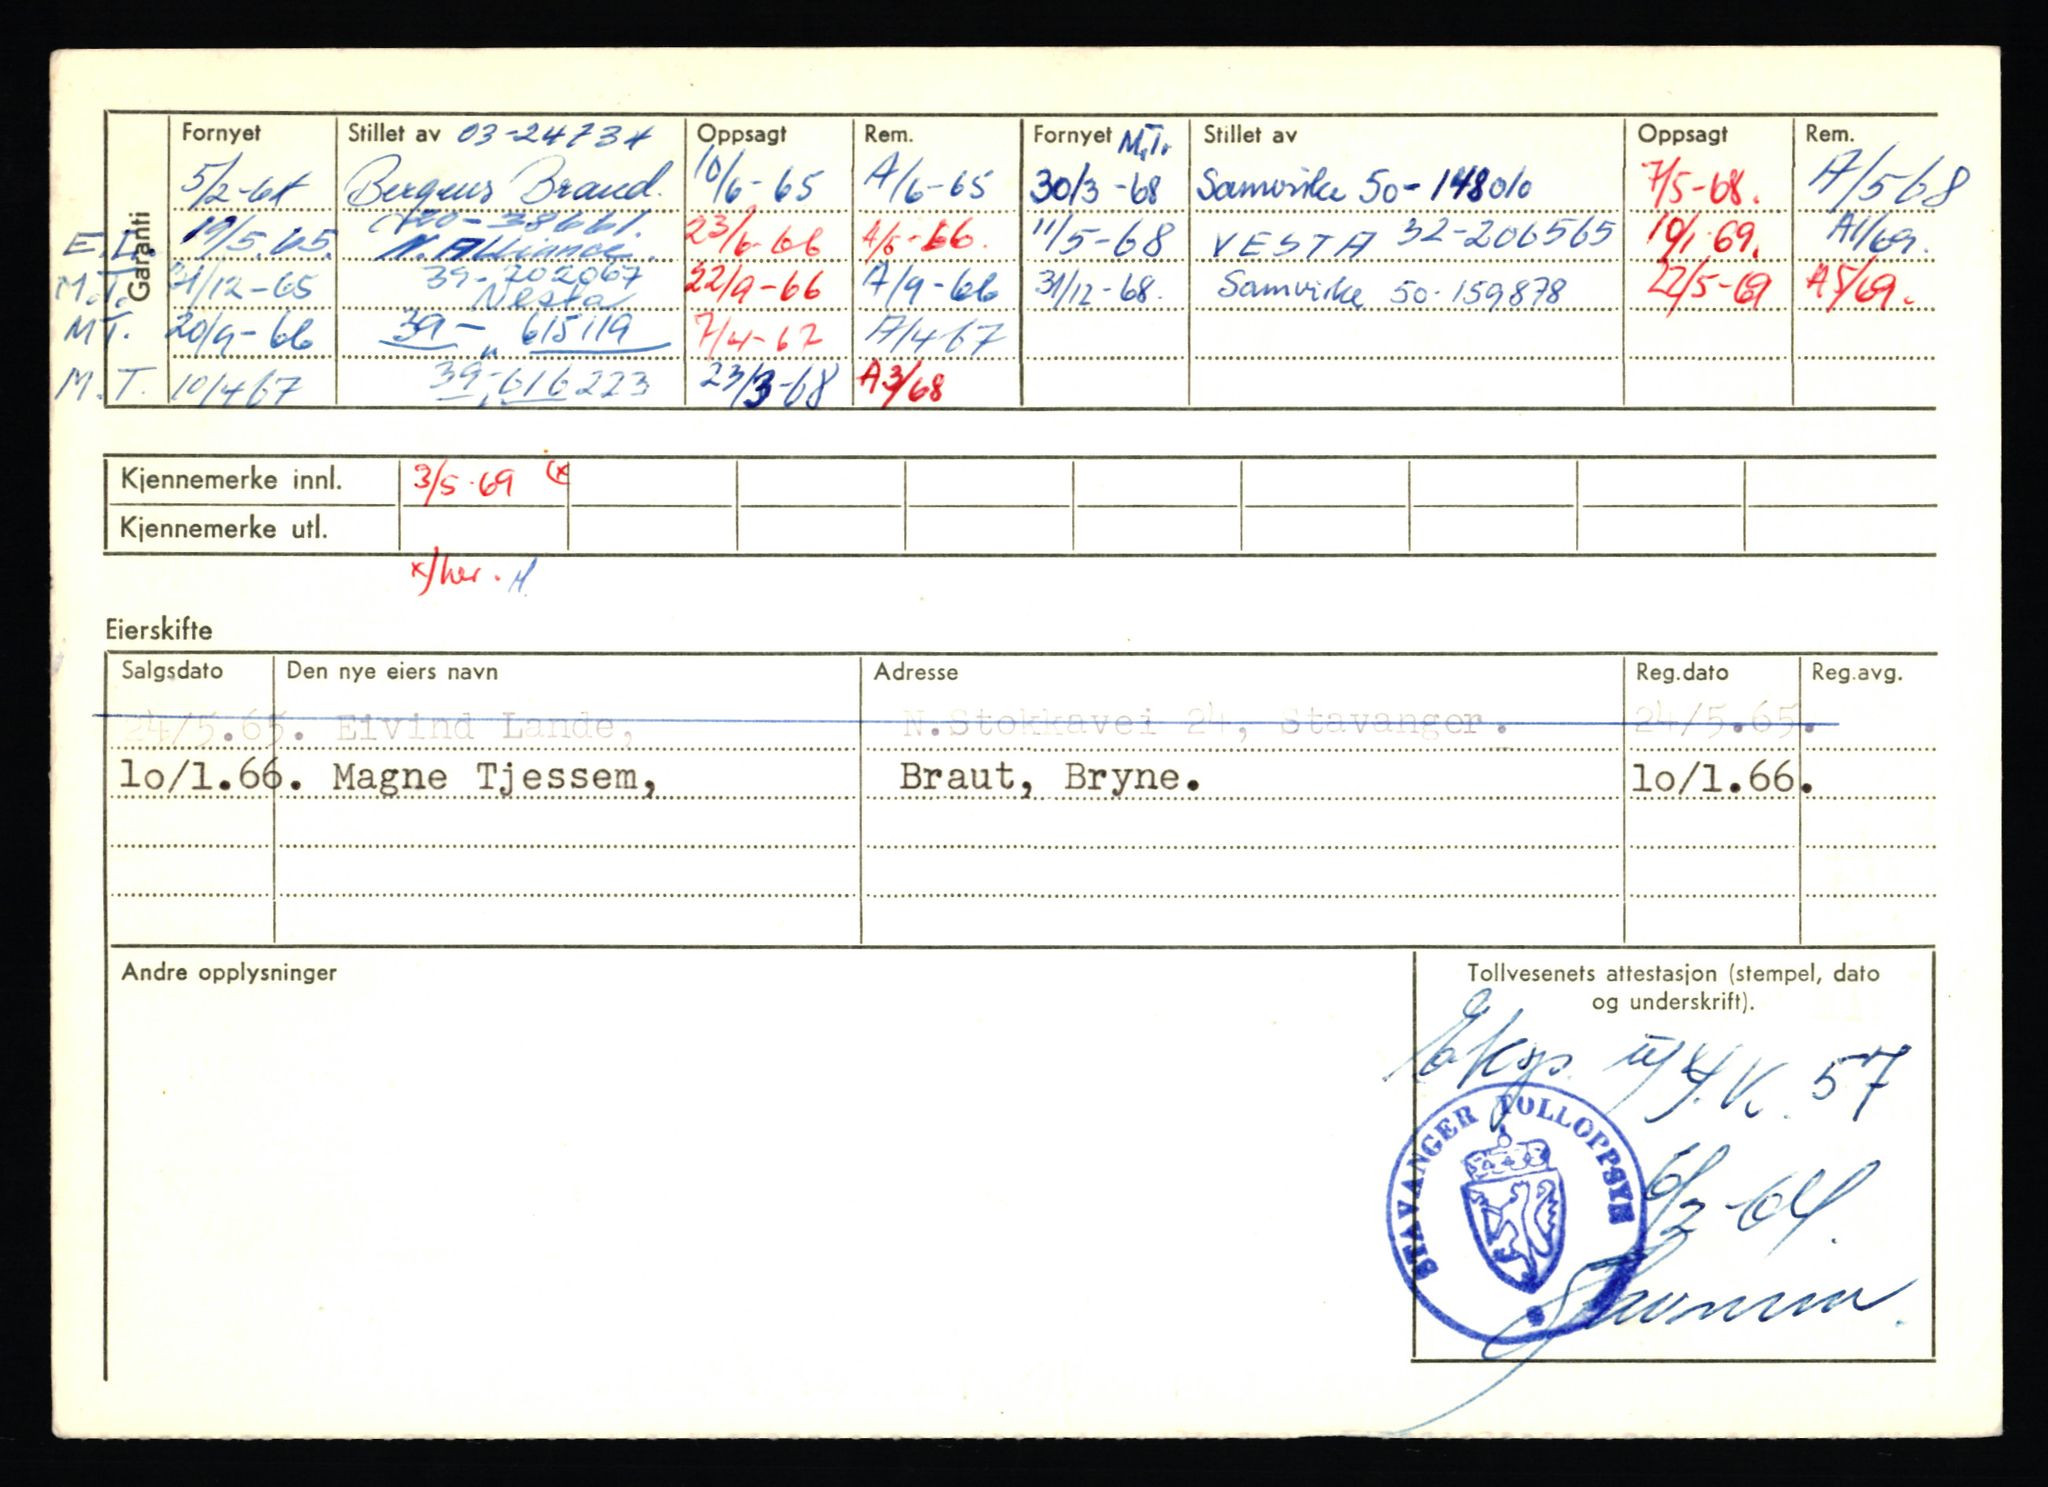 Garanti
Fornyet Stillet av 03-24734 Oppsagt Rem. Fornyet M.T. Stillet av Oppsagt Rem.
5/2-64 Bergens Brand. 10/6-65 A/6-65 30/3-68 Samvirke 50-148010 7/5-68. A/5 68
E.L. 19/5.65. 38661. N. Alliance. 23/6-66 A/6-66. 11/5-68 VESTA 32-206565 10/1-69. A1/69.
M.T. 31/12-65 39-202067 Vesta 22/9-66 A/9-66 31/12-68. Samvirke 50-159878 22/5-69 A5/69.
M.T. 20/9-66 39- " 615119 7/4-67 A/4-67
M.T. 10/4 67 39-616223 23/3-68 A3/68
Kjennemerke innl. 3/5-69 (x
Kjennemerke utl.
x/her.
Eierskifte
Salgsdato Den nye eiers navn Adresse Reg.dato Reg.avg.
24/5.65. Eivind Lande, N.Stokkavei 24, Stavanger. 24/5.65.
lo/1.66. Magne Tjessem, Braut, Bryne. lo/1.66.
Andre opplysninger
Tollvesenets attestasjon (stempel, dato
og underskrift).
Eksp. 57
STAVANGER TOLLOPPSYN
6/2-64.